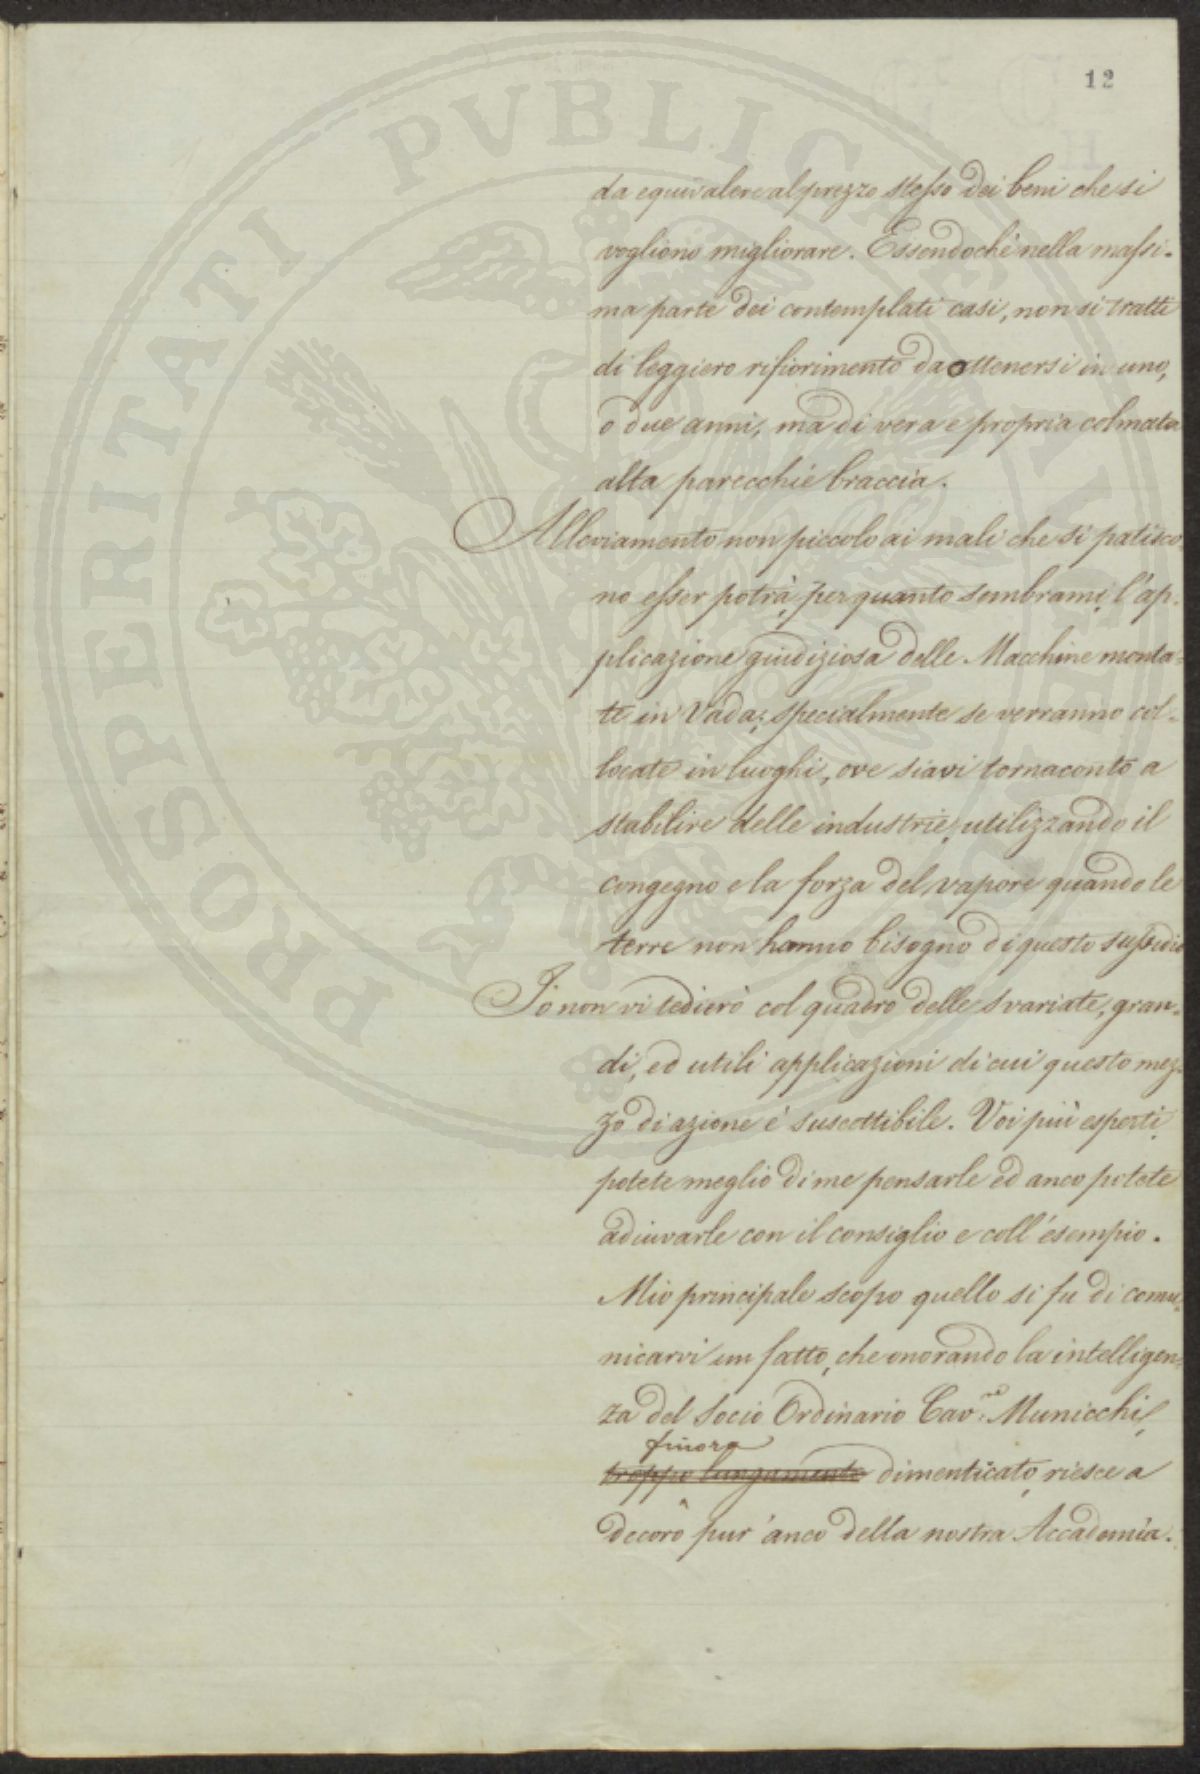 12
da equivalere al prezzo stesso dei beni che si
vogliono migliorare. Essendochè nella massi-
ma parte dei contemplati casi, non si tratti
di leggiero rifiorimento da ottenersi in uno,
o due anni, ma di vera e propria colmata
alta parecchie braccia.
Alleviamento non piccolo ai mali che si patisco-
no esser potrà, per quanto sembrami, l'ap-
plicazione giudiziosa delle Macchine monta-
te in Vada; specialmente se verranno col-
locate in luoghi, ove siavi tornaconto a
stabilire delle industrie, utilizzando il
congegno e la forza del vapore quando le
terre non hanno bisogno di questo sussidio
Io non vi tedierò col quadro delle svariate, gran-
di, ed utili applicazioni di cui questo mez-
zo di azione è suscettibile. Voi più esperti,
potete meglio di me pensarle ed anco potete
adiuvarle con il consiglio e coll'esempio.
Mio principale scopo quello si fu di comu-
nicarvi un fatto, che onorando la intelligen-
za del Socio Ordinario Cav:re Municchi,
finora
troppo lungamente dimenticato, riesce a
decoro pur'anco della nostra Accademia.
PROSPERITATI PUBLICAE